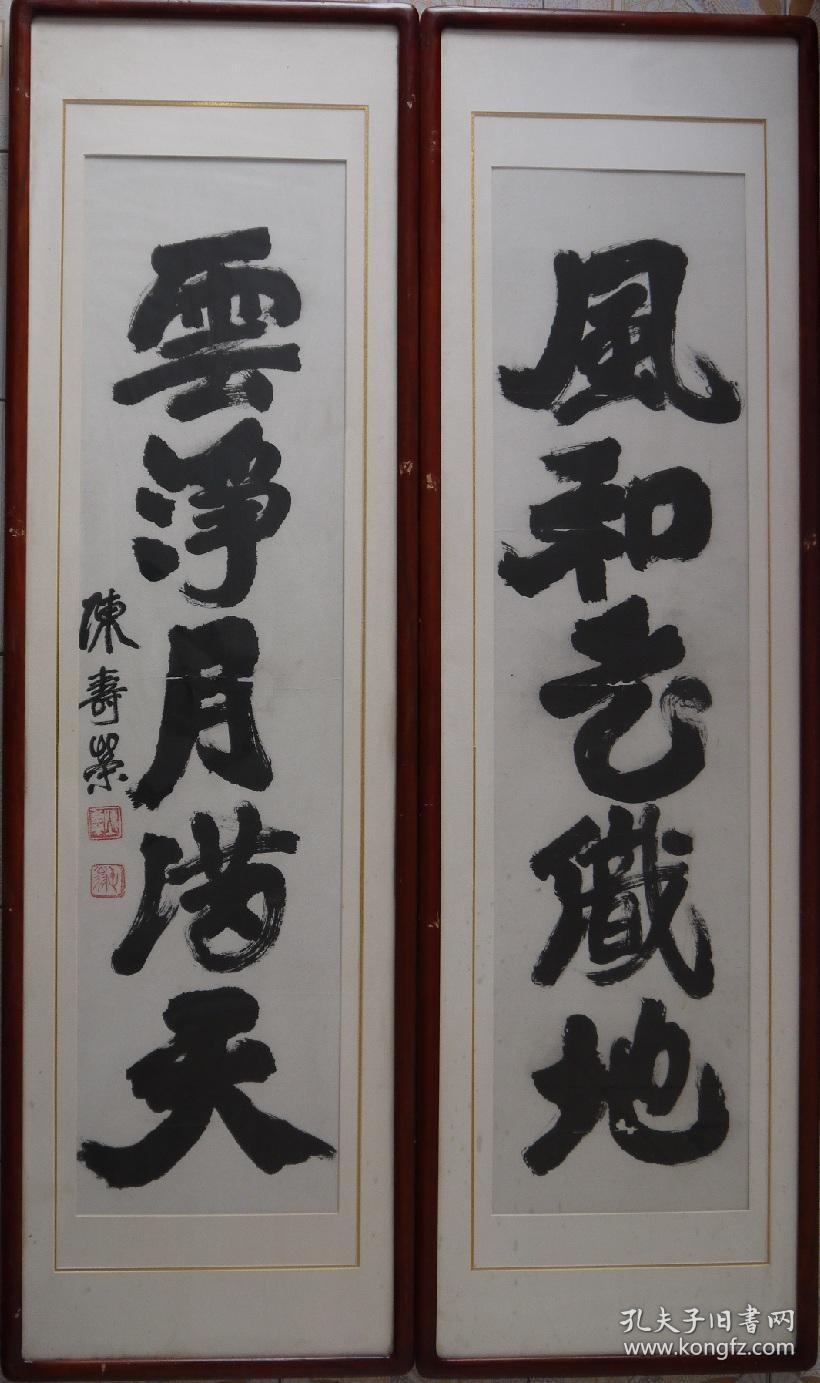 風和花織地
雲淨月满天
陳壽榮
孔夫子旧书网
www.kongfz.com